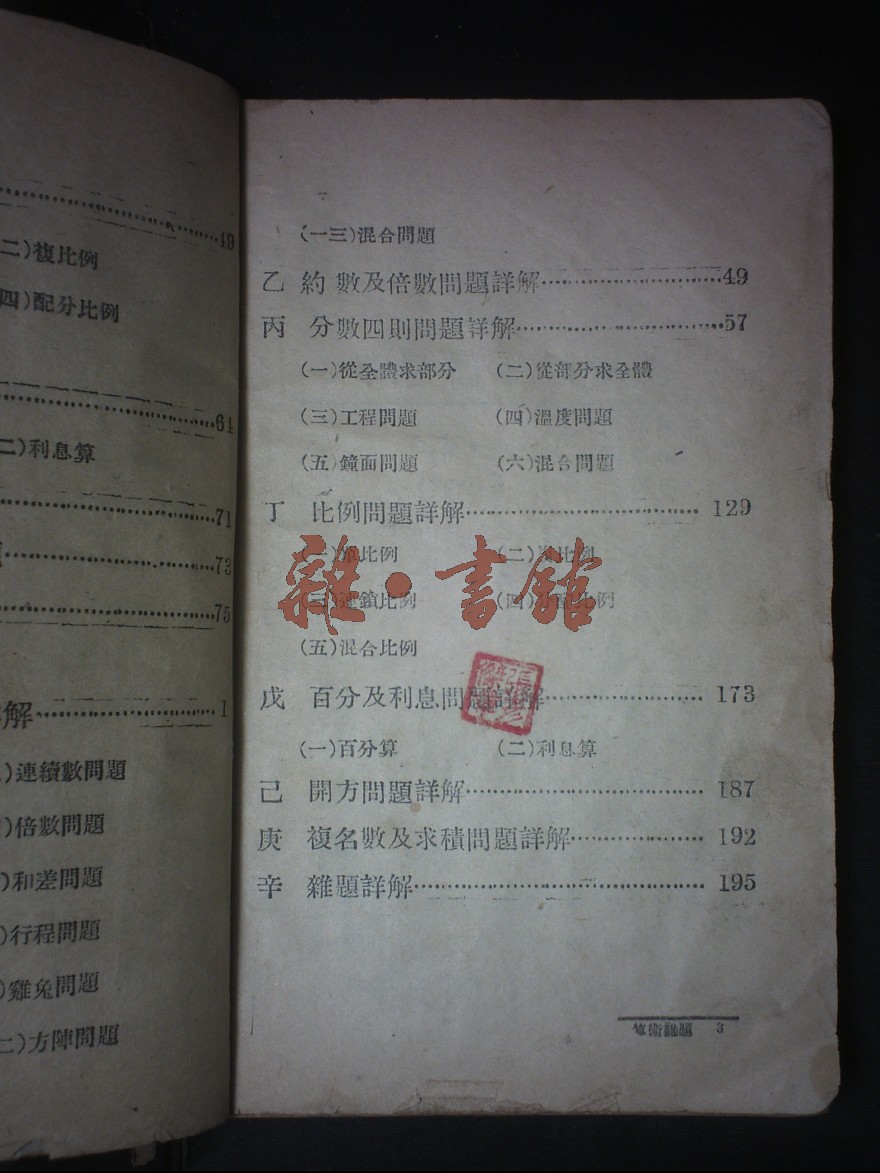 49
二)複比例
四)配分比例
61
二)利息算
71
73
75
解 1
)連續數問題
)倍數問題
)和差問題
)行程問題
)雞兔問題
二)方陣問題
(一三)混合問題
乙 約數及倍數問題詳解 49
丙 分數四則問題詳解 57
(一)從全體求部分 (二)從部分求全體
(三)工程問題 (四)溫度問題
(五)鐘面問題 (六)混合問題
丁 比例問題詳解 129
(一)單比例 (二)比例
(三)連鎖比例 (四)分配比例
雜·書館
(五)混合比例
戊 百分及利息問題詳解 173
(一)百分算 (二)利息算
己 開方問題詳解 187
庚 複名數及求積問題詳解 192
辛 雜題詳解 195
算術難題 3